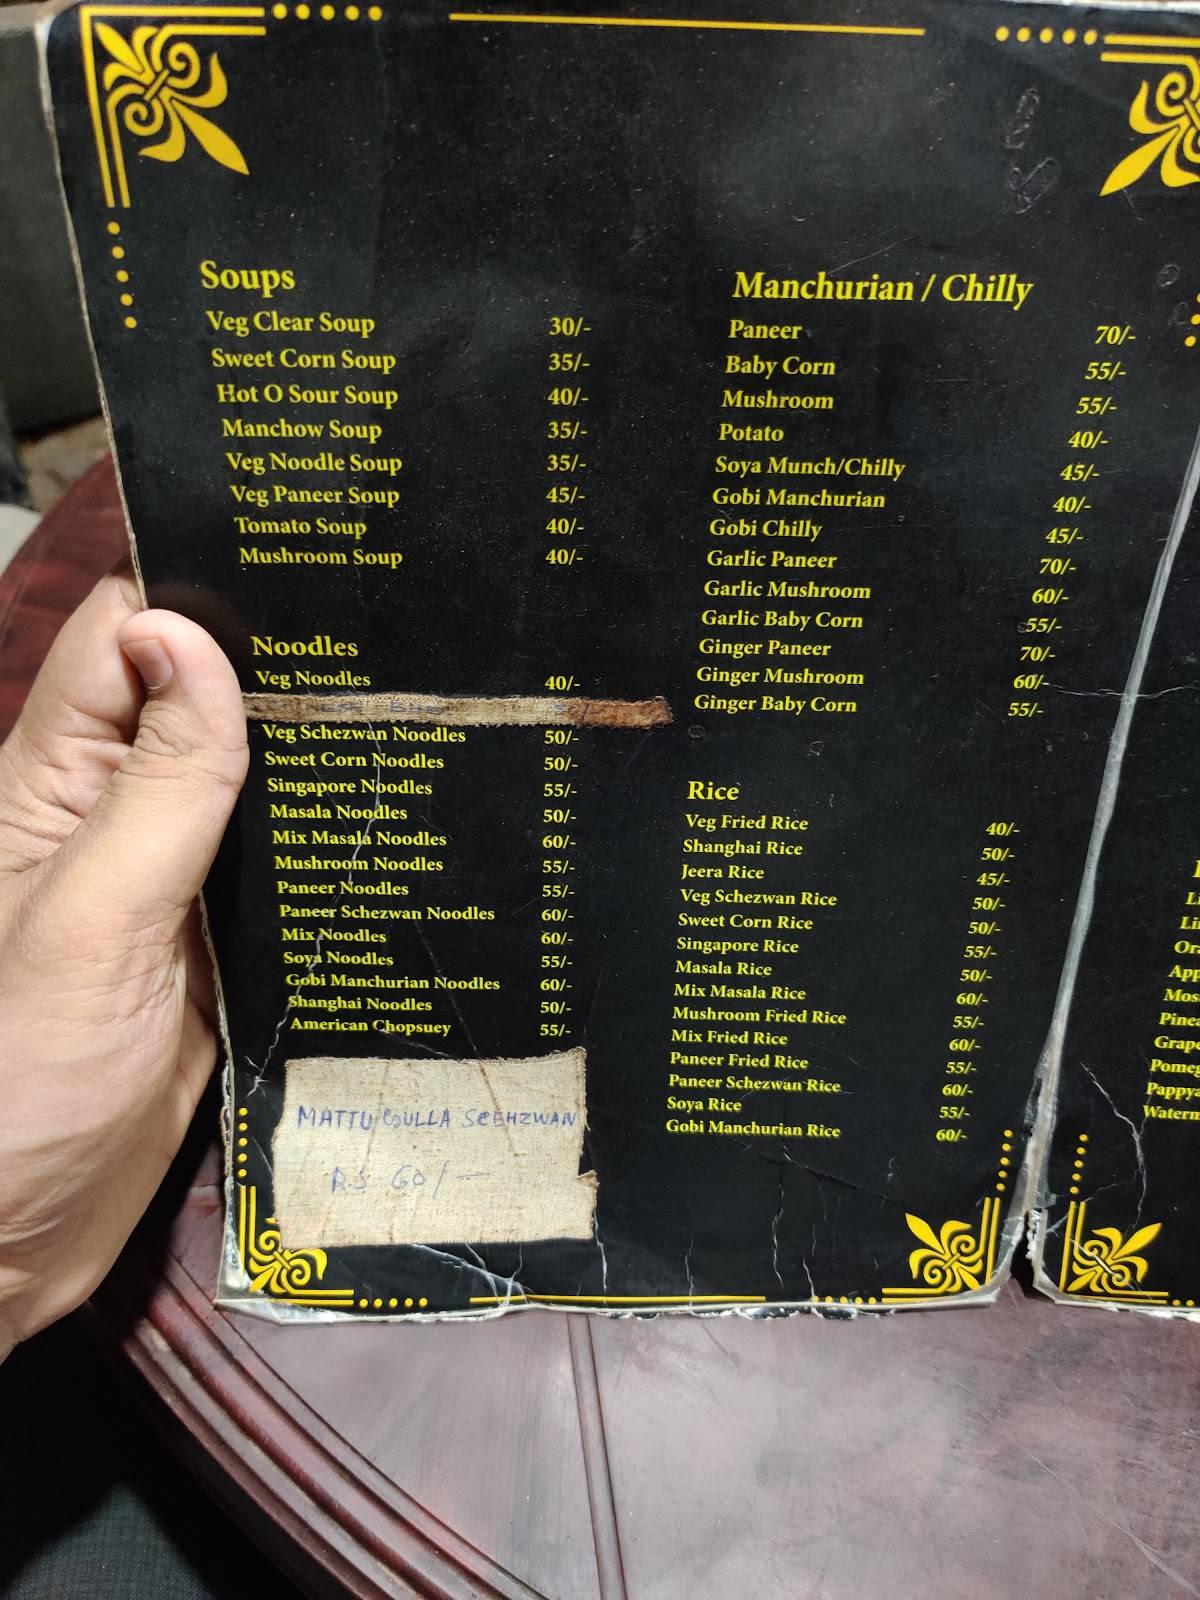 Soups
Veg Clear Soup 30/-
Sweet Corn Soup 35/-
Hot O Sour Soup 40/-
Manchow Soup 35/-
Veg Noodle Soup 35/-
Veg Paneer Soup 45/-
Tomato Soup 40/-
Mushroom Soup 40/-
Noodles
Veg Noodles 40/-
Veg Schezwan Noodles 50/-
Sweet Corn Noodles 50/-
Singapore Noodles 55/-
Masala Noodles 50/-
Mix Masala Noodles 60/-
Mushroom Noodles 55/-
Paneer Noodles 55/-
Paneer Schezwan Noodles 60/-
Mix Noodles 60/-
Soya Noodles 55/-
Gobi Manchurian Noodles 60/-
Shanghai Noodles 50/-
American Chopsuey 55/-
MATTU GULLA SCEHZWAN
RS 60/-
Manchurian / Chilly
Paneer 70/-
Baby Corn 55/-
Mushroom 55/-
Potato 40/-
Soya Munch/Chilly 45/-
Gobi Manchurian 40/-
Gobi Chilly 45/-
Garlic Paneer 70/-
Garlic Mushroom 60/-
Garlic Baby Corn 55/-
Ginger Paneer 70/-
Ginger Mushroom 60/-
Ginger Baby Corn 55/-
Rice
Veg Fried Rice 40/-
Shanghai Rice 50/-
Jeera Rice 45/-
Veg Schezwan Rice 50/-
Sweet Corn Rice 50/-
Singapore Rice 55/-
Masala Rice 50/-
Mix Masala Rice 60/-
Mushroom Fried Rice 55/-
Mix Fried Rice 60/-
Paneer Fried Rice 55/-
Paneer Schezwan Rice 60/-
Soya Rice 55/-
Gobi Manchurian Rice 60/-